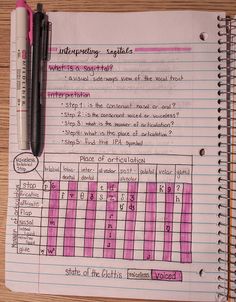 interpreting sagittals
What is a Sagittal?
• a visual side-ways view of the vocal tract
Interpretation
• Step 1: is the consonant nasal or oral?
• Step 2: is the consonant voiced or voiceless?
• Step 3: what is the manner of articulation?
• Step 4: what is the place of articulation?
• Step 5: find the IPA symbol
Place of articulation
bilabial labio-dental inter-dental alveolar post-alveolar palatal velar glottal
Stop p b t d k g ʔ
fricative f v θ ð s z h
affricate
flap
nasal m n
glide w
State of the Glottis voiceless voiced